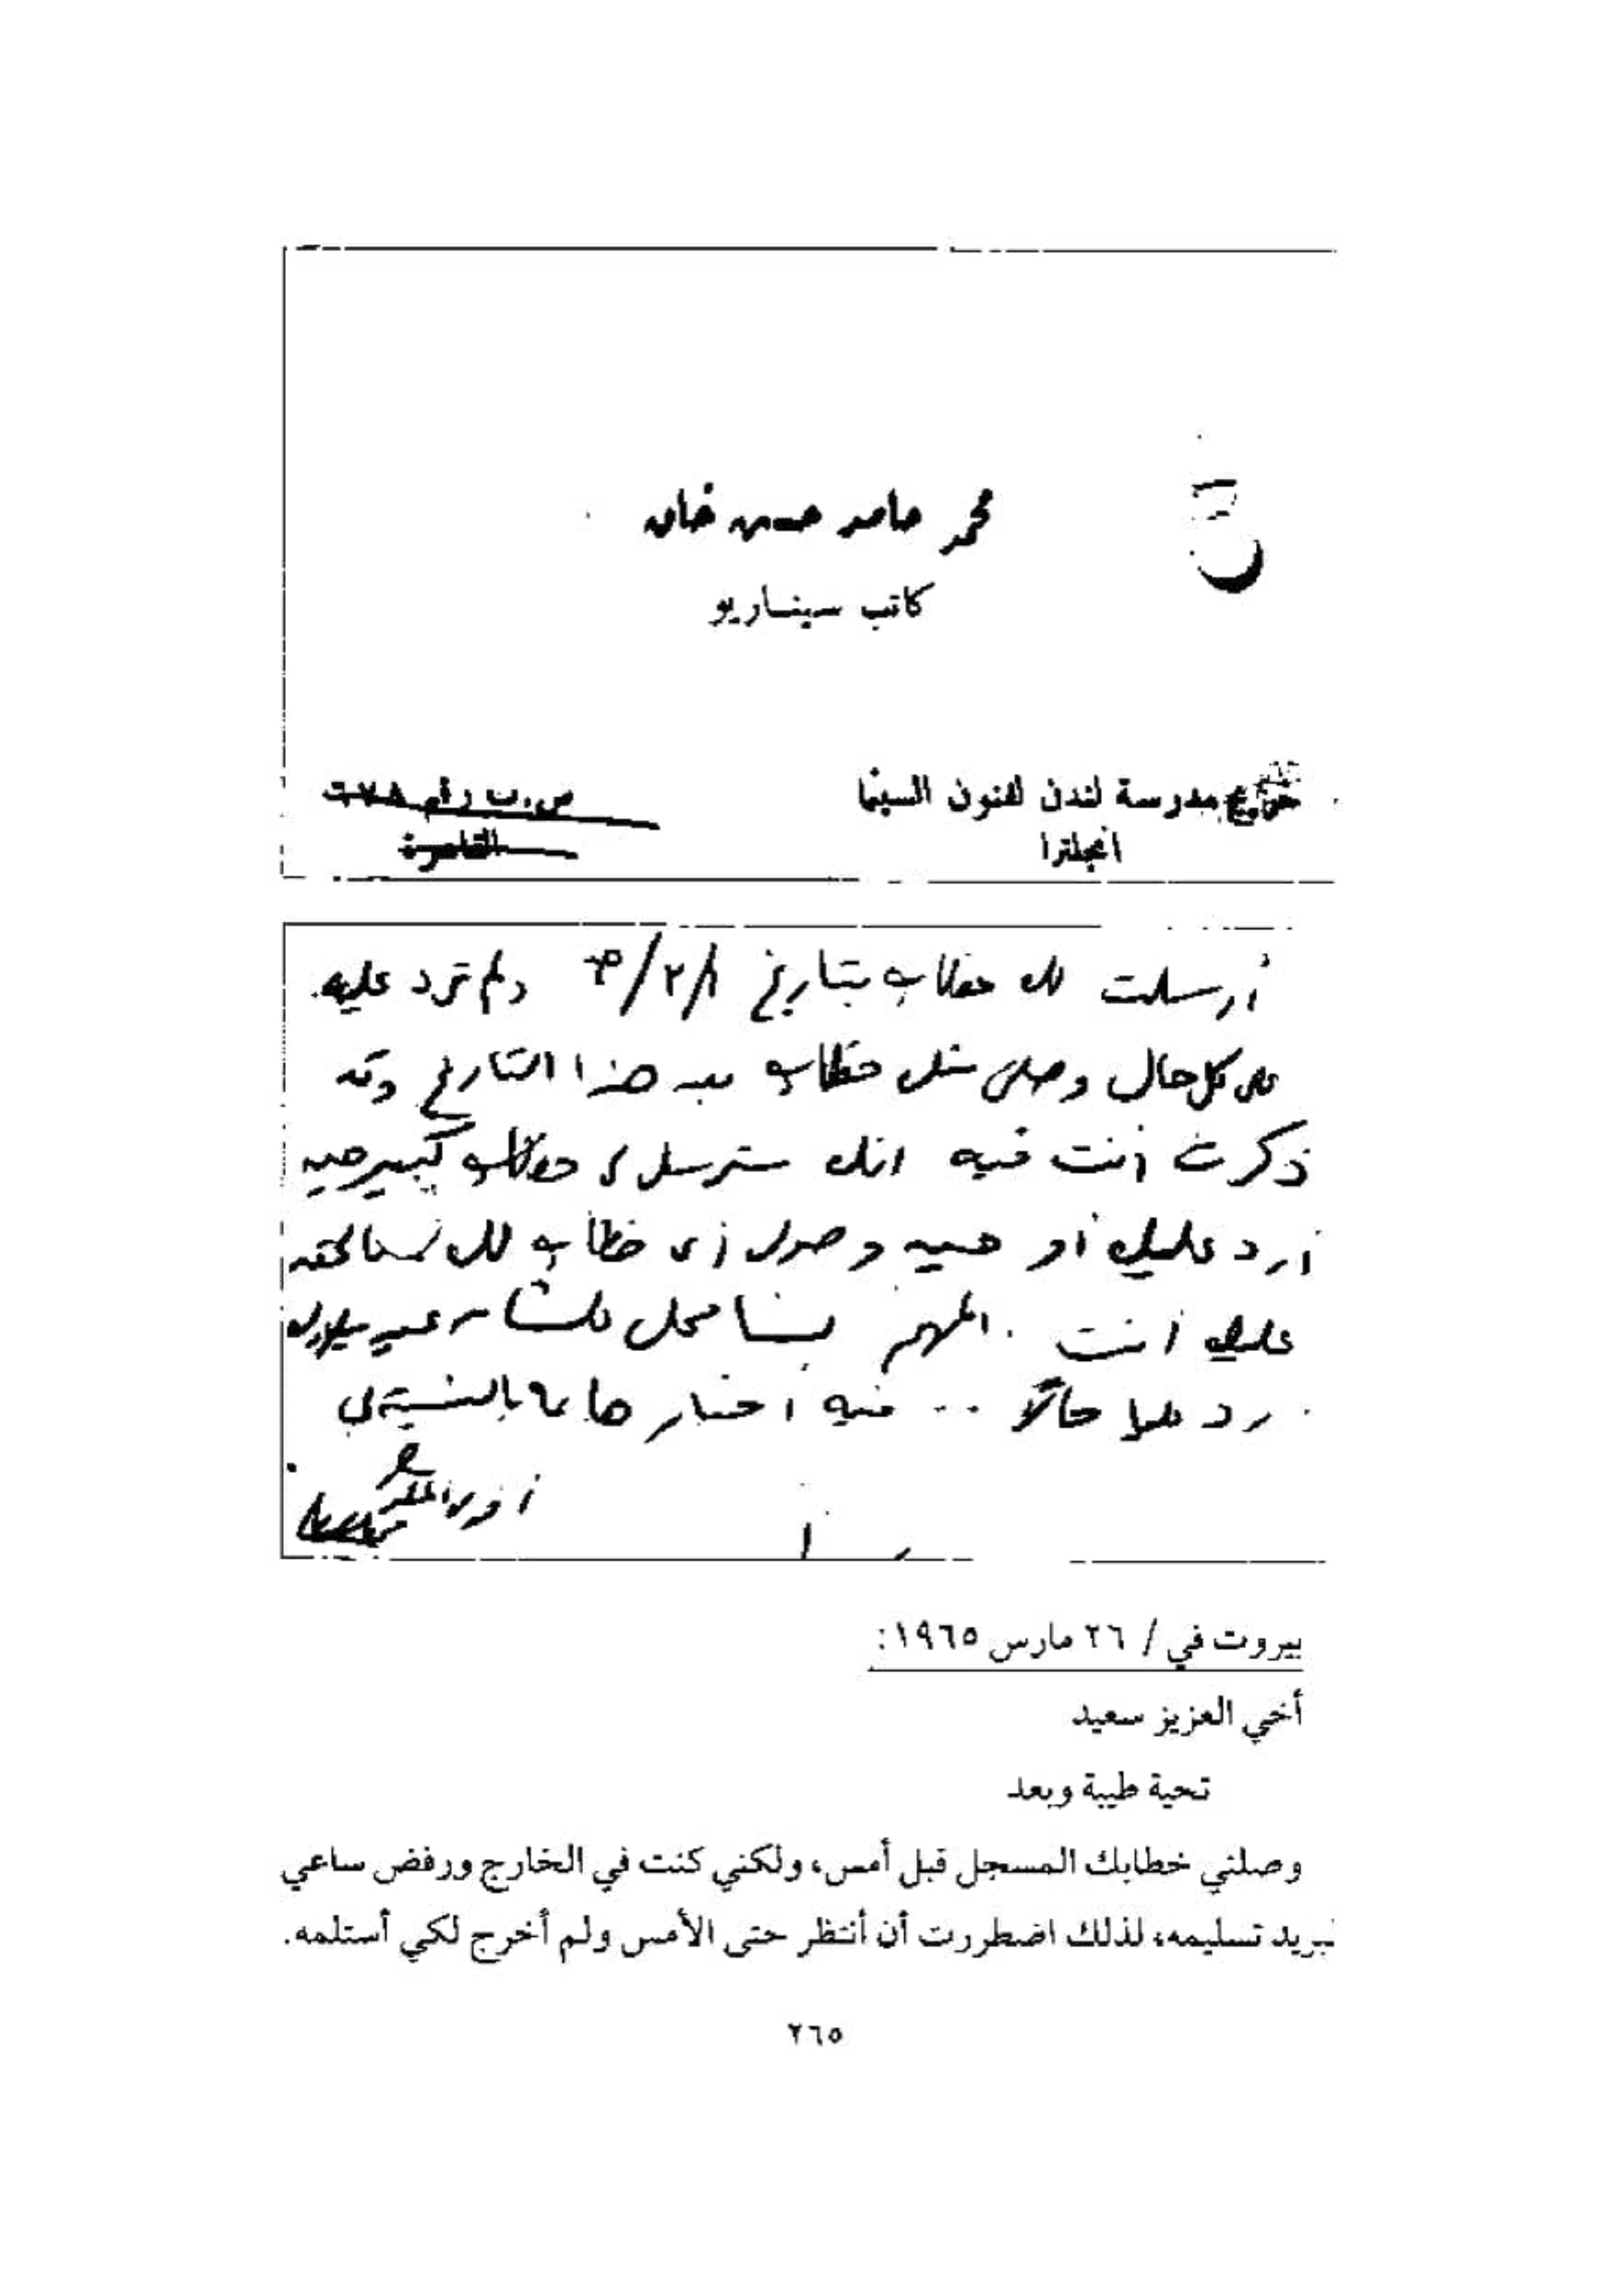 محمد حامد حسن خان
كاتب سيناريو
خريج مدرسة لندن لفنون السينما
انجلترا
ص.ب رقم ٦٧٨
القاهرة
أرسلت لك خطاب بتاريخ ولم ترد عليه.
على كل حال وصلنى منك خطاب بعد هذا التاريخ وقد
ذكرت أنت فيه انك سترسل لى خطاب كبير حين
أرد عليك أو حين وصول خطاب لك
عليك أنت. المهم
رد عليا حالاً .. فيه أخبار هامة بالنسبة لى
بيروت في / ٢٦ مارس ١٩٦٥:
أخي العزيز سعيد
تحية طيبة وبعد
وصلني خطابك المسجل قبل أمس، ولكني كنت في الخارج ورفض ساعي
لبريد تسليمه، لذلك اضطررت أن أنتظر حتى الأمس ولم أخرج لكي أستلمه.
٢٦٥